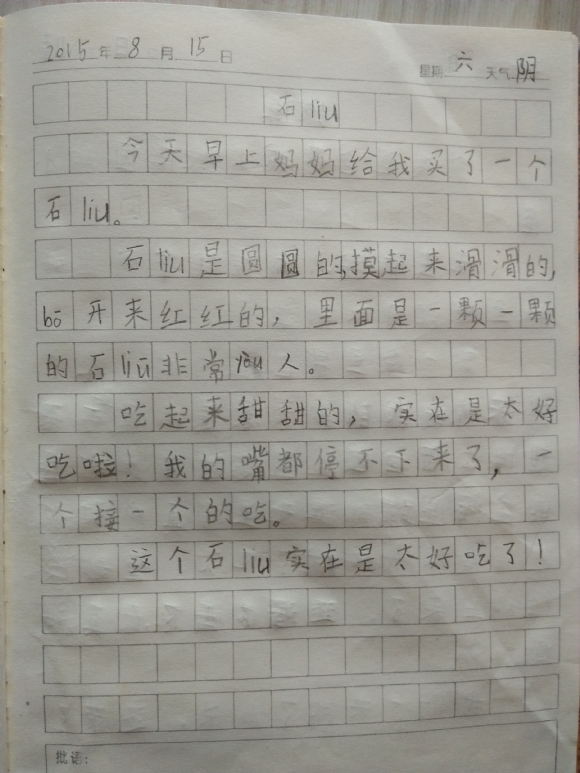 2015年 8月 15日 星期 六 天气 阴
石liu
今天早上妈妈给我买了一个
石liu。
石liu是圆圆的,摸起来滑滑的,
bō开来红红的,里面是一颗一颗
的石liū非常yòu人。
吃起来甜甜的,实在是太好
吃啦!我的嘴都停不下来了,一
个接一个的吃。
这个石liu实在是太好吃了!
批语: